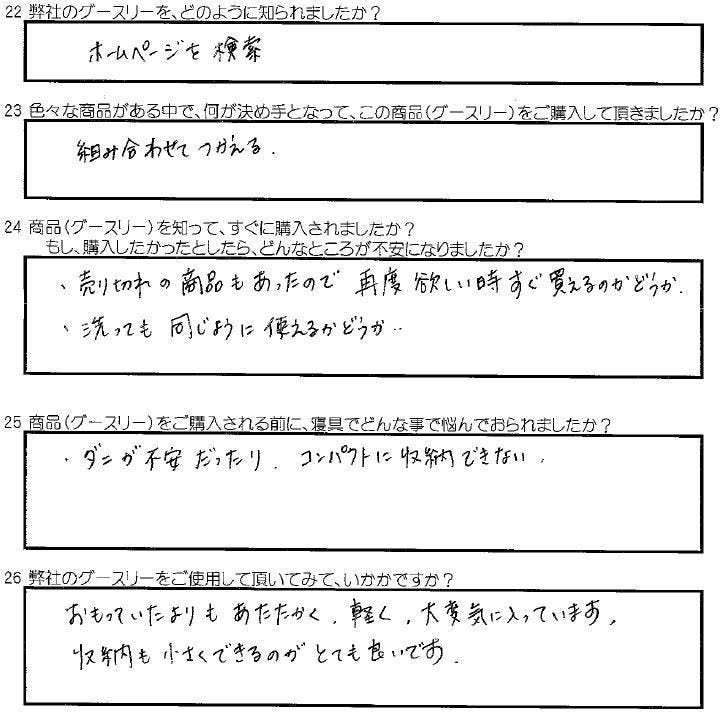 22 弊社のグースリーを、どのように知られましたか？
ホームページを 検索
23 色々な商品がある中で、何が決め手となって、この商品（グースリー）をご購入して頂きましたか？
組み合わせて つかえる.
24 商品（グースリー）を知って、すぐに購入されましたか？
もし、購入したかったとしたら、どんなところが不安になりましたか？
・売り切れの商品もあったので 再度 欲しい時すぐ買えるのかどうか.
・洗っても 同じように 使えるかどうか‥
25 商品（グースリー）をご購入される前に、寝具でどんな事で悩んでおられましたか？
・ダニが不安だったり. コンパクトに収納できない.
26 弊社のグースリーをご使用して頂いてみて、いかかですか？
おもっていたよりも あたたかく, 軽く, 大変気に入っています,
収納も 小さくできるのが とても良いです.